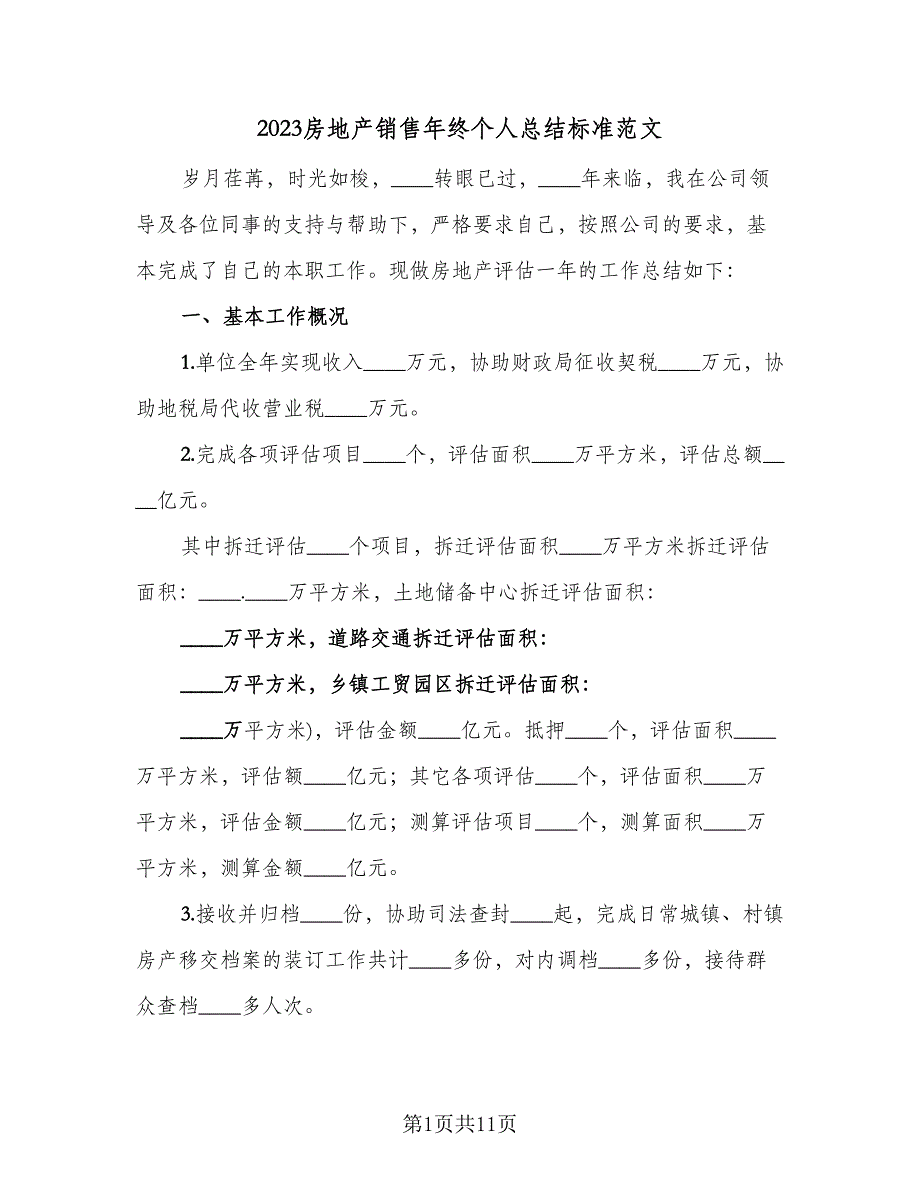 2023房地产销售年终个人总结标准范文
岁月荏苒，时光如梭，____转眼已过，____年来临，我在公司领
导及各位同事的支持与帮助下，严格要求自己，按照公司的要求，基
本完成了自己的本职工作。现做房地产评估一年的工作总结如下：
一、基本工作概况
1.单位全年实现收入____万元，协助财政局征收契税____万元，协
助地税局代收营业税____万元。
2.完成各项评估项目____个，评估面积____万平方米，评估总额__
__亿元。
其中拆迁评估____个项目，拆迁评估面积____万平方米拆迁评估
面积：____.____万平方米，土地储备中心拆迁评估面积：
____万平方米，道路交通拆迁评估面积：
____万平方米，乡镇工贸园区拆迁评估面积：
____万平方米)，评估金额____亿元。抵押____个，评估面积____
万平方米，评估额____亿元；其它各项评估____个，评估面积____万
平方米，评估金额____亿元；测算评估项目____个，测算面积____万
平方米，测算金额____亿元。
3.接收并归档____份，协助司法查封____起，完成日常城镇、村镇
房产移交档案的装订工作共计____多份，对内调档____多份，接待群
众查档____多人次。
第1页共11页